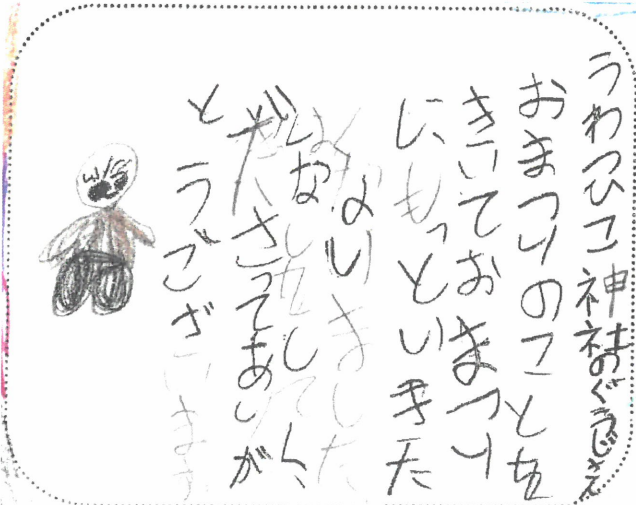 うわつひこ神社のぐうじさん
おまつりのことを
きいておまつり
にもっといきた
くなりました
はなしをしてく
ださってありが
とうございます